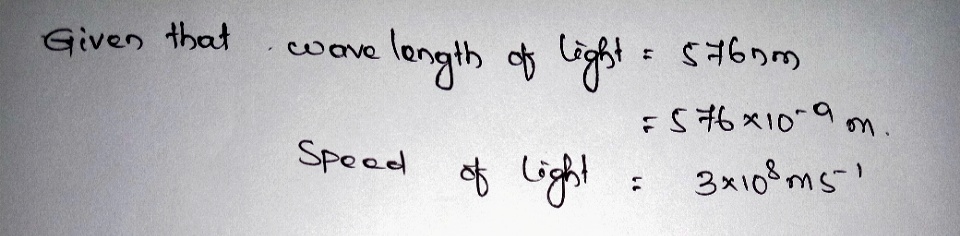 Given that wave length of light = 576nm
= 576 x 10⁻⁹ m.
Speed of light = 3x10⁸ ms⁻¹